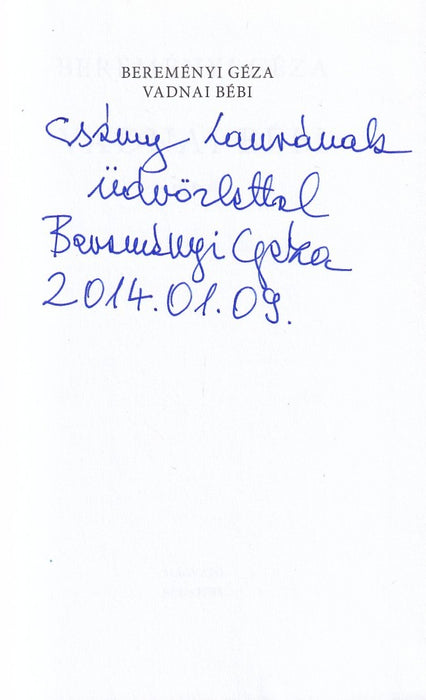 BEREMÉNYI GÉZA
VADNAI BÉBI
Csány Laurának
üdvözlettel
Bereményi Géza
2014.01.09.